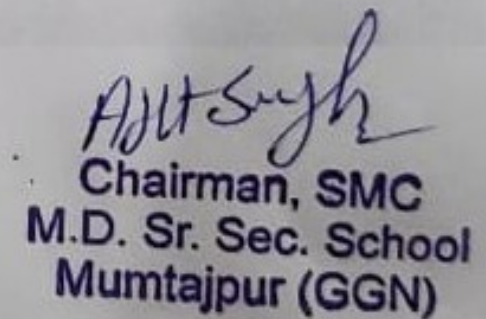 Ajit Singh
Chairman, SMC
M.D. Sr. Sec. School
Mumtajpur (GGN)